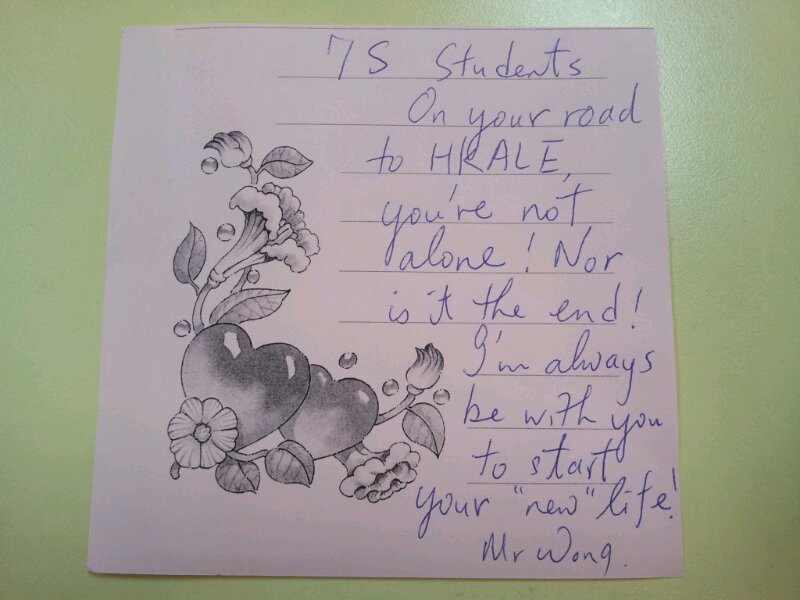 7S Students
On your road
to HKALE,
you're not
alone! Nor
is it the end!
I'm always
be with you
to start
your "new" life!
Mr Wong.